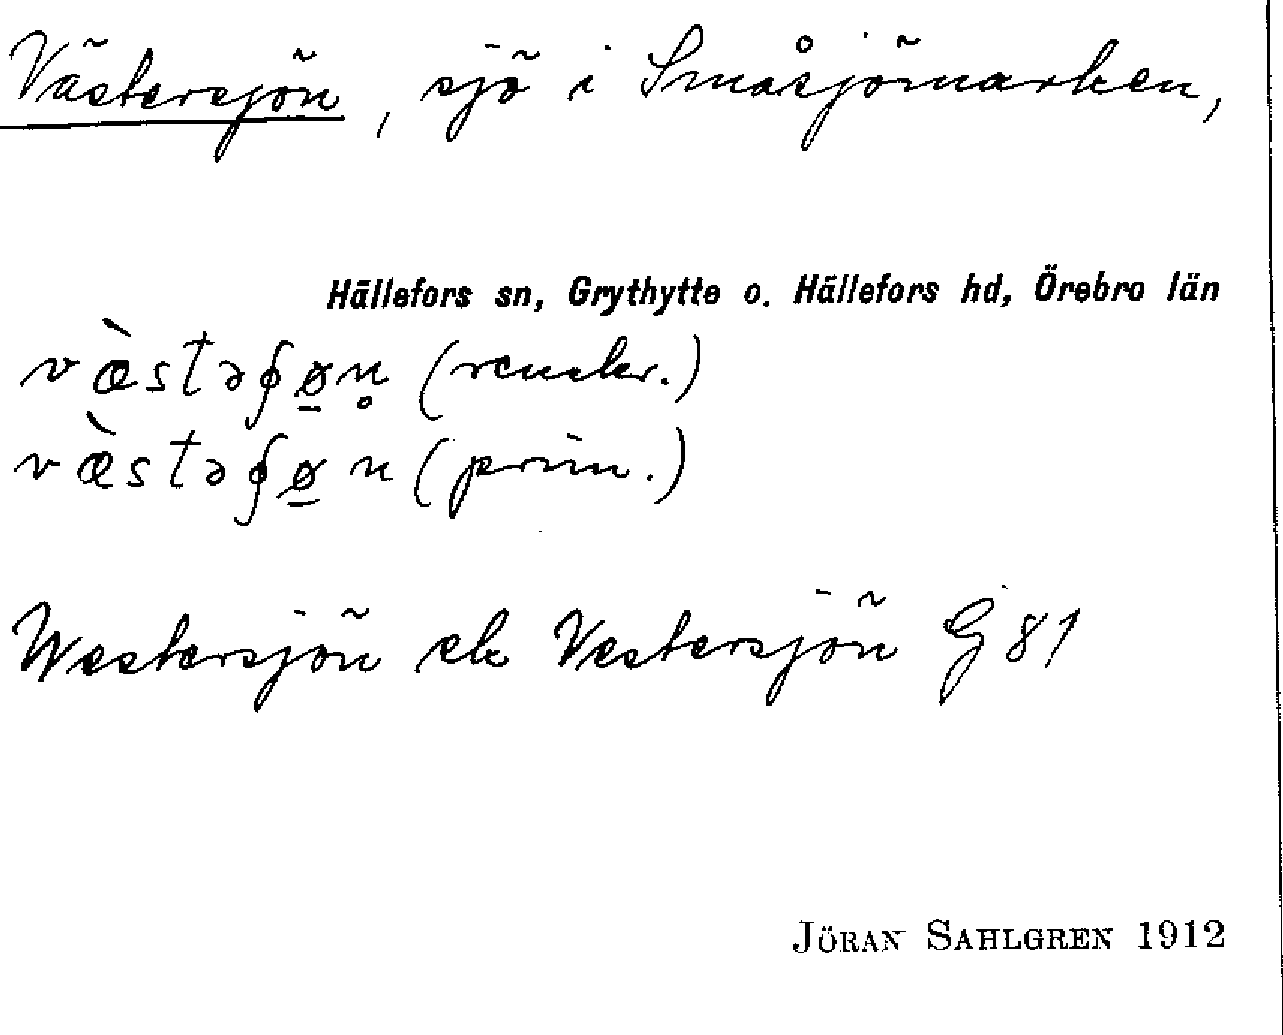 Västersjön, sjö i Småsjömarken,
Hällefors sn, Grythytte o. Hällefors hd, Örebro län
væ̀stəʃø̱n̥ (renskr.)
væ̀stəʃø̱n (prim.)
Westersjön ek Vestersjön G 81
JÖRAN SAHLGREN 1912